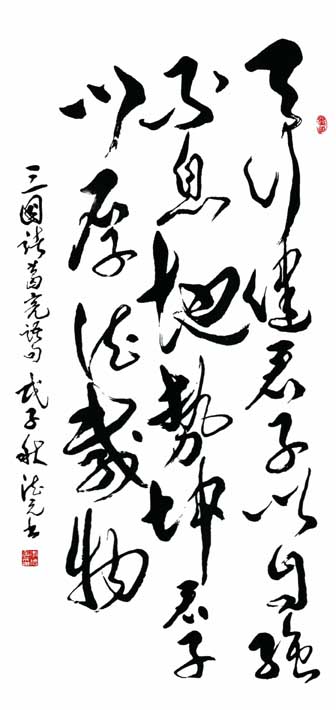 天行健君子以自强
不息地势坤君子
以厚德载物
三国诸葛亮语句 戊子秋 德元书